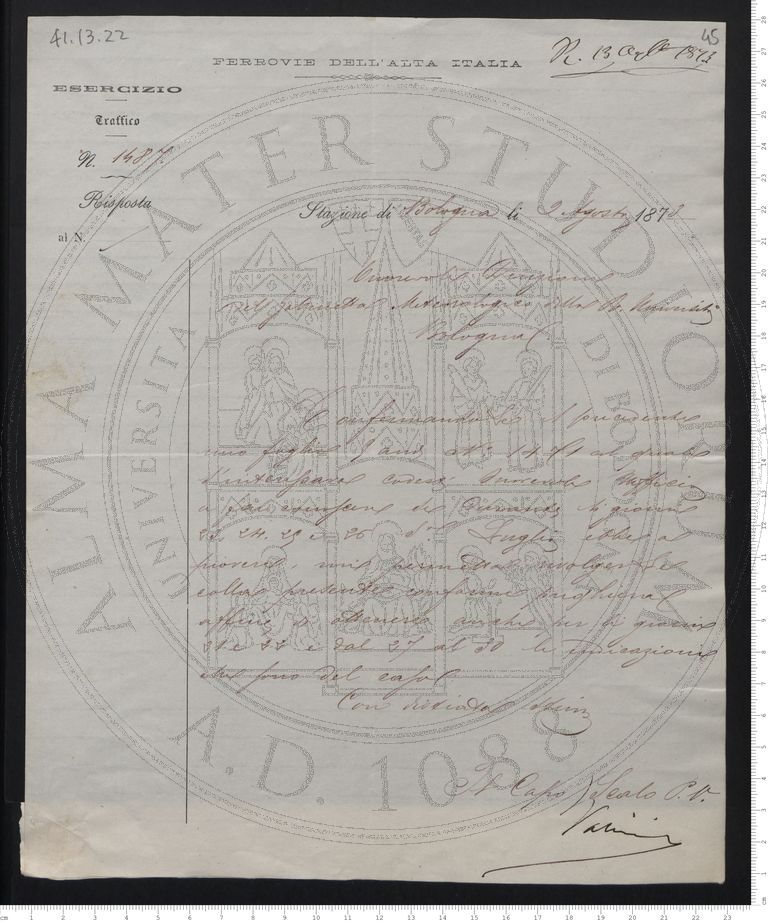 41.13.22
45
FERROVIE DELL'ALTA ITALIA
R. 13 1873
ESERCIZIO
Traffico
N. 1487
Risposta
al N.
Stazione di Bologna li 2 Agosto 1873
Onorevole Direzione
del Gabinetto Meteorologico della R. Università
Bologna
Confermando il precedente
mio foglio N. al quale
d'interessare codesto Onorevole Ufficio
a far conoscere se durante li giorni
24, 25 e 26 Luglio ebbe a
piovere, mi permetto rivolgerle
colla presente conforme preghiera
affine d'ottenere anche per li giorni
21 e 22 e dal 27 al 30 le indicazioni
che sono del caso
Con distinta stima
Il Capo Scalo P. V.
ALMA MATER STUDIORUM
UNIVERSITA DI BOLOGNA
A.D. 1088